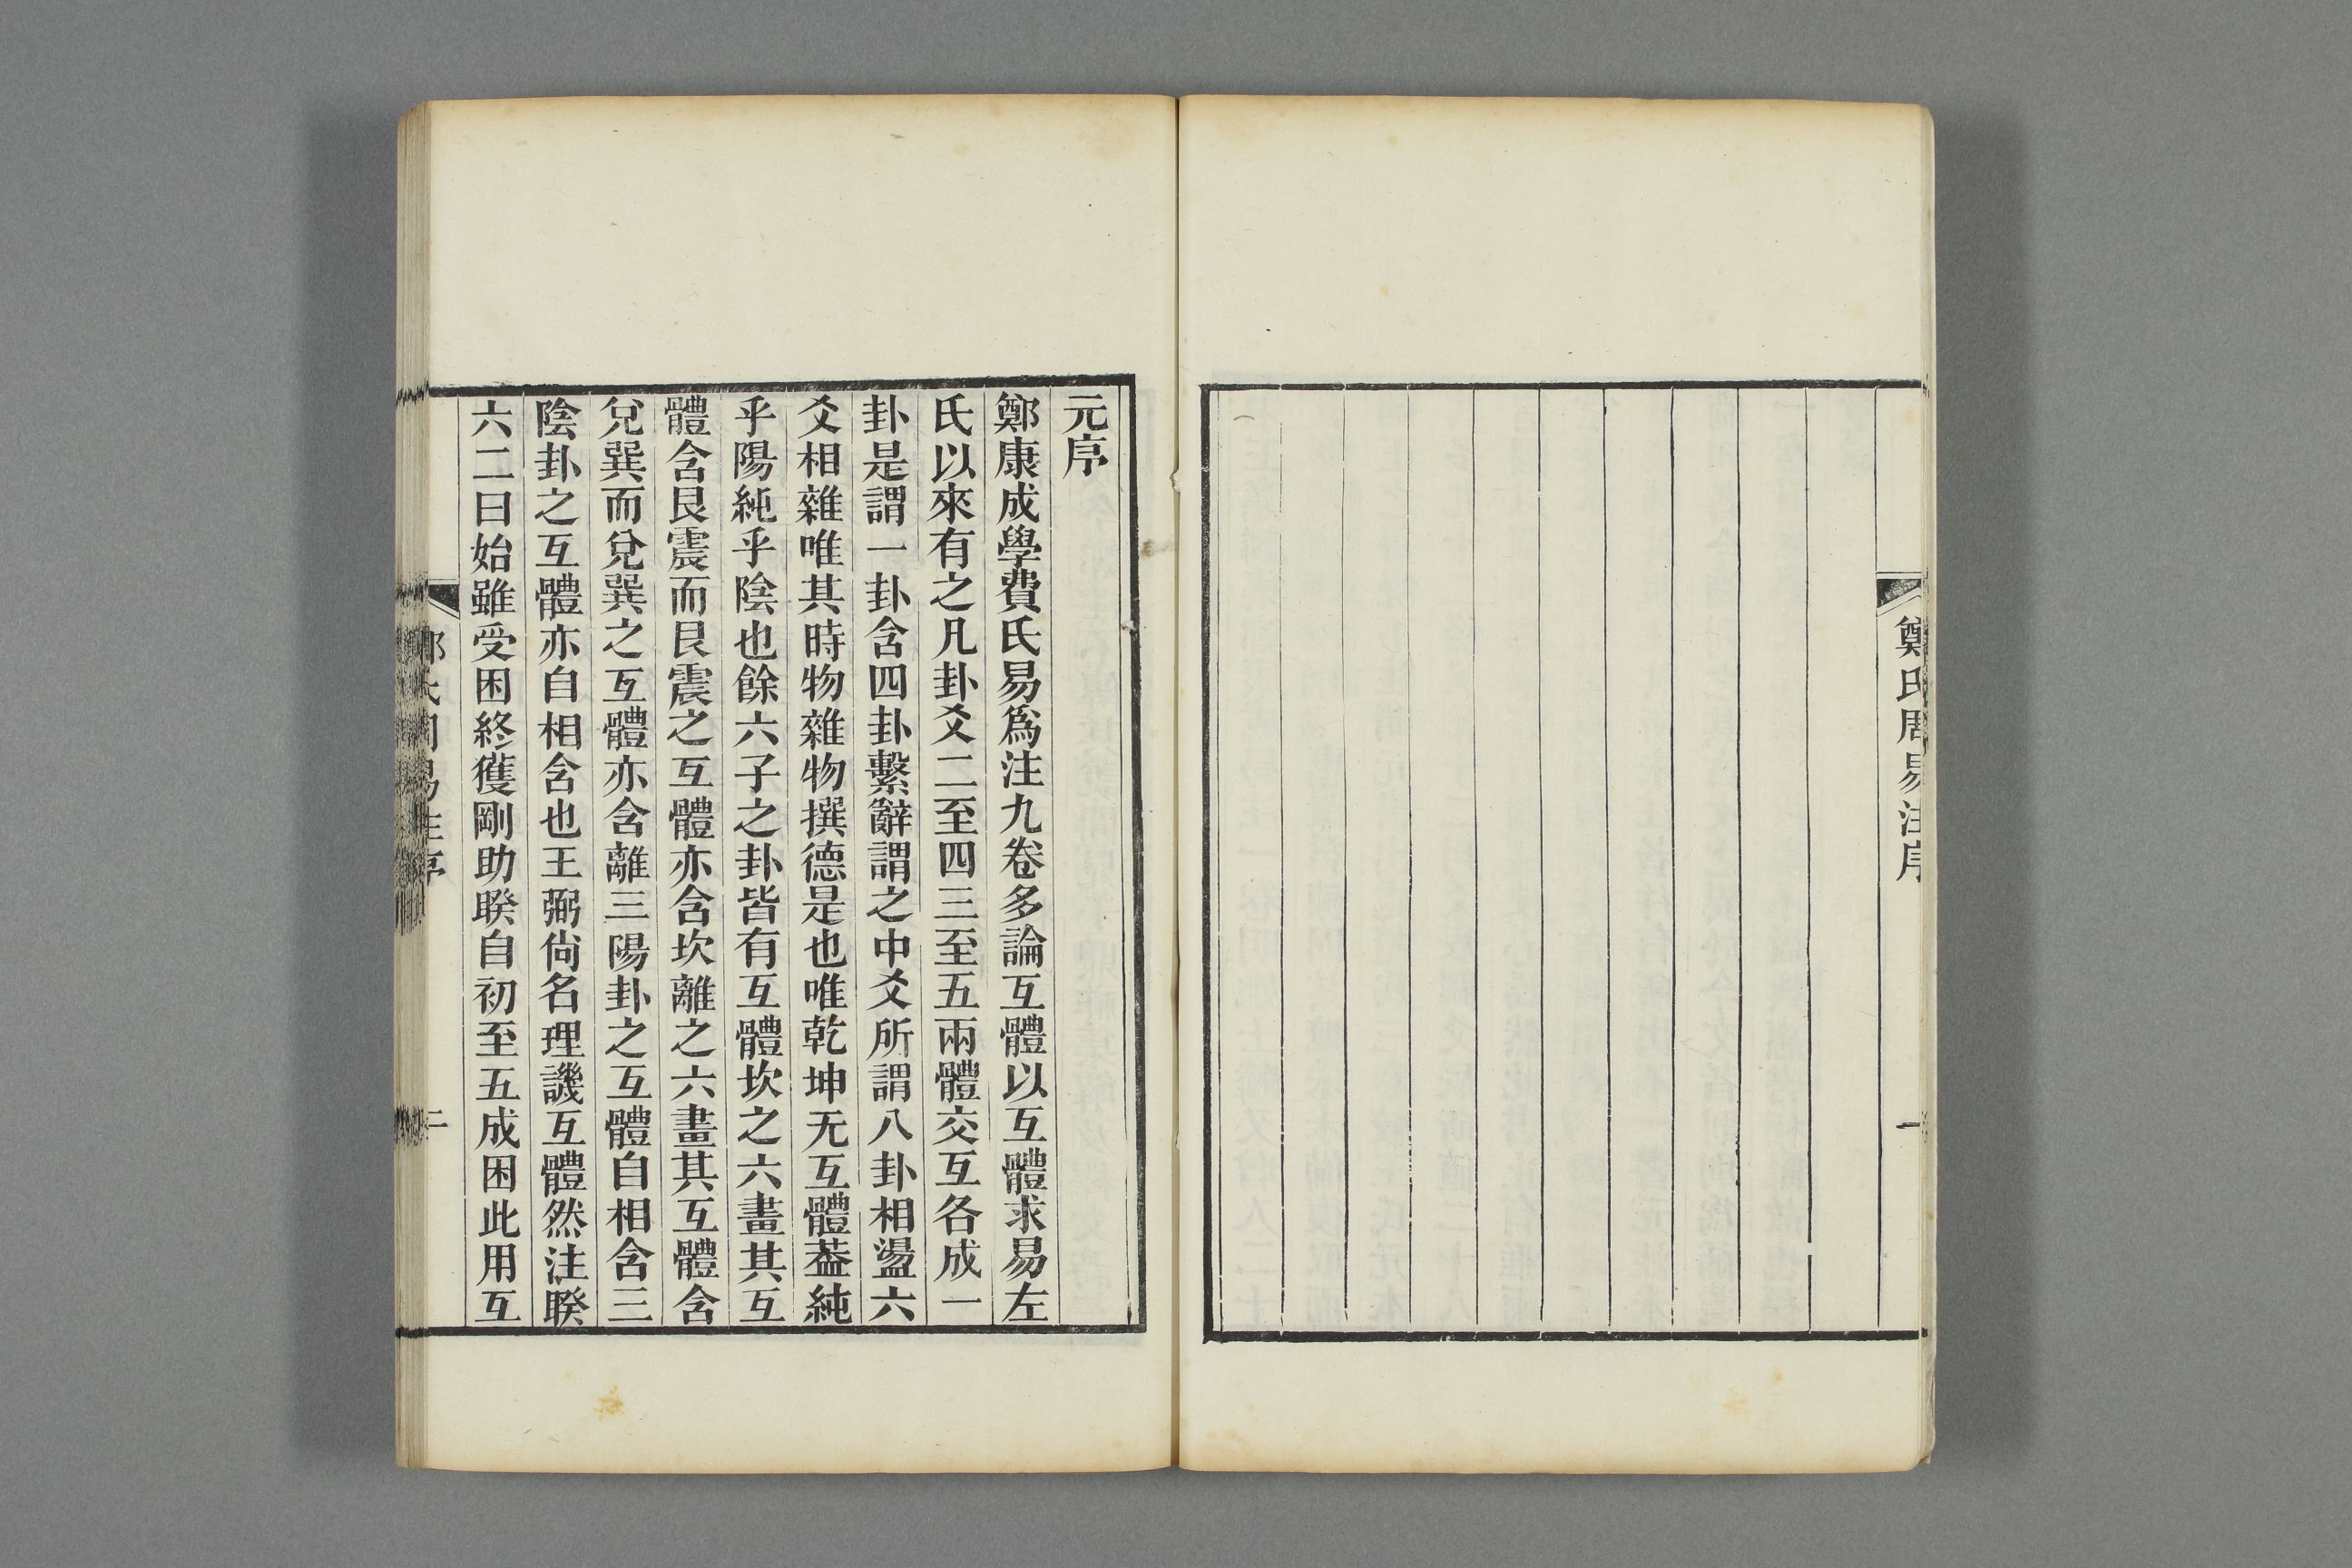 鄭氏周易注序
一
元序
鄭康成學費氏易爲注九卷多論互體以互體求易左
氏以來有之凡卦爻二至四三至五兩體交互各成一
卦是謂一卦含四卦繫辭謂之中爻所謂八卦相盪六
爻相雜唯其時物雜物撰德是也唯乾坤无互體葢純
乎陽純乎陰也餘六子之卦皆有互體坎之六畫其互
體含艮震而艮震之互體亦含坎離之六畫其互體含
兌巽而兌巽之互體亦含離三陽卦之互體自相含三
陰卦之互體亦自相含也王弼尙名理譏互體然注睽
六二曰始雖受困終獲剛助睽自初至五成困此用互
鄭氏周易注序
二